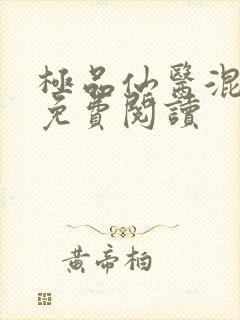 極品仙醫混
免費閱讀
黃帝柏